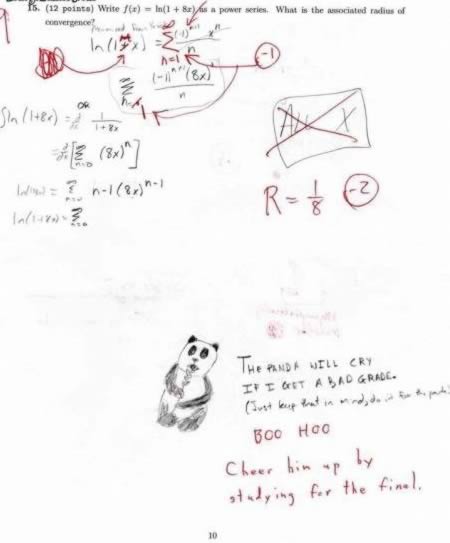 9
15. (12 points) Write f(x) = ln(1 + 8x) as a power series. What is the associated radius of
convergence?
ln(1+x) = Σ n=1 (-1)^(n+1) x^n / n
-1
Σ (-1)^(n+1) (8x)^n / n
1
OR
ln(1+8x) = 1 / 1+8x
= [Σ n=0 (8x)^n]
= Σ n-1 (8x)^n-1
ln(1+8x) = Σ n=0
All X
R = 1/8 -2
THE PANDA WILL CRY
IF I GET A BAD GRADE.
(Just keep that in mind, do it for the panda)
BOO HOO
Cheer him up by
studying for the final.
10